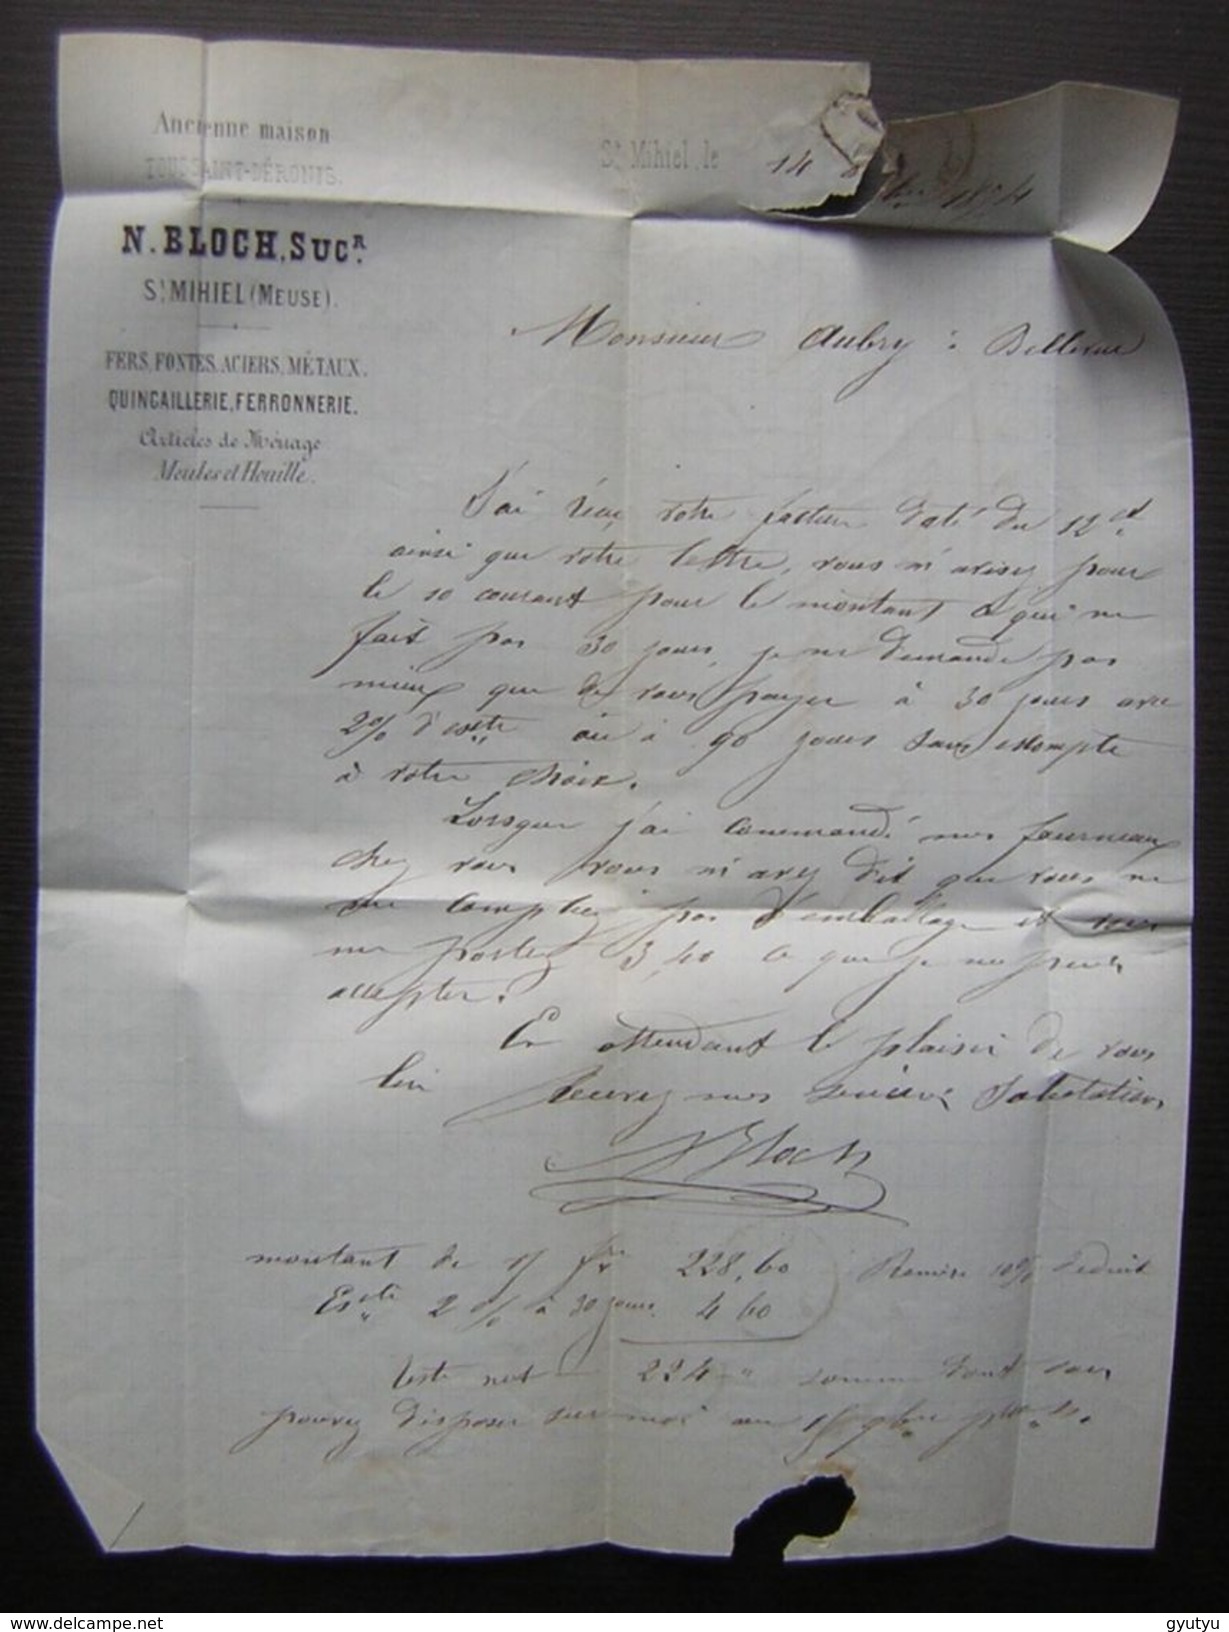 Ancienne maison
TOUSSAINT-DÉRONIS.
N. BLOCH, SUCR.
St MIHIEL (MEUSE).
FERS, FONTES, ACIERS, MÉTAUX.
QUINCAILLERIE, FERRONNERIE.
Articles de Ménage
Meules et Houille.
St Mihiel, le 14 bre 1874
Monsieur Aubry à Bellevue
J'ai reçu votre facture daté du 12 ct
ainsi que votre lettre, vous m'avisez pour
le 10 courant pour le montant ce qui ne
fait pas 30 jours, je ne demande pas
mieux que de vous payer à 30 jours avec
2% d'escte ou à 90 jours sans escompte
à votre choix.
Lorsque j'ai commandé mes fourneaux
chez vous vous m'avez dit que vous ne
me comptiez pas d'emballage et vous
me portez 3,40 ce que je ne peux
accepter.
En attendant le plaisir de vous
lire recevez mes sincères Salutations
N Bloch
montant de fre 228,60 Remise 10% déduit
Escte 2% à 30 jours. 4 60
Reste net 224 " somme dont vous
pouvez disposer sur moi au 15 9bre
www.delcampe.net
gyutyu